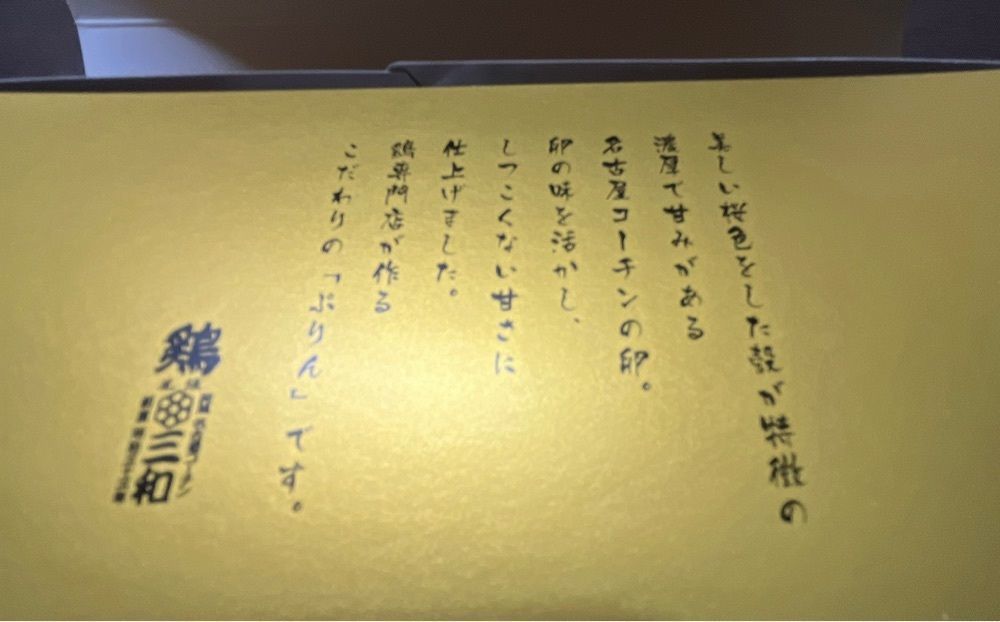 美しい桜色をした殻が特徴の
濃厚で甘みがある
名古屋コーチンの卵。
卵の味を活かし、
しつこくない甘さに
仕上げました。
鶏専門店が作る
こだわりの「ぷりん」です。
鶏三和